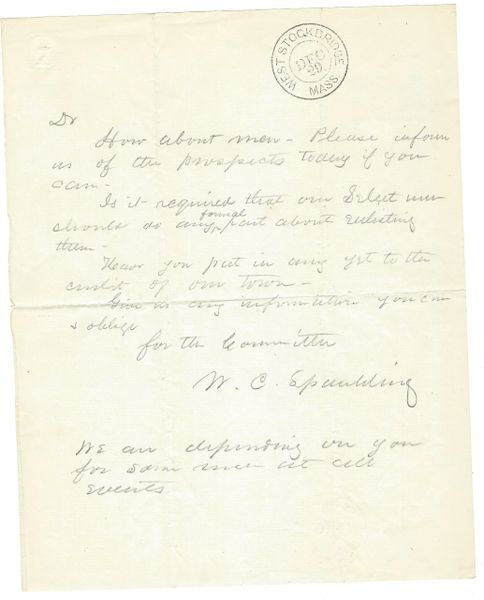 WEST STOCKBRIDGE
DEC
29
MASS.
Dr
How about men - Please inform
us of the prospects today if you
can -
Is it required that our Select men
should do any formal part about Enlisting
them -
Have you put in any yet to the
credit of our town -
Give us any information you can
& oblige
for the Committee
W. C. Spaulding
We are depending on you
for some men at all
events